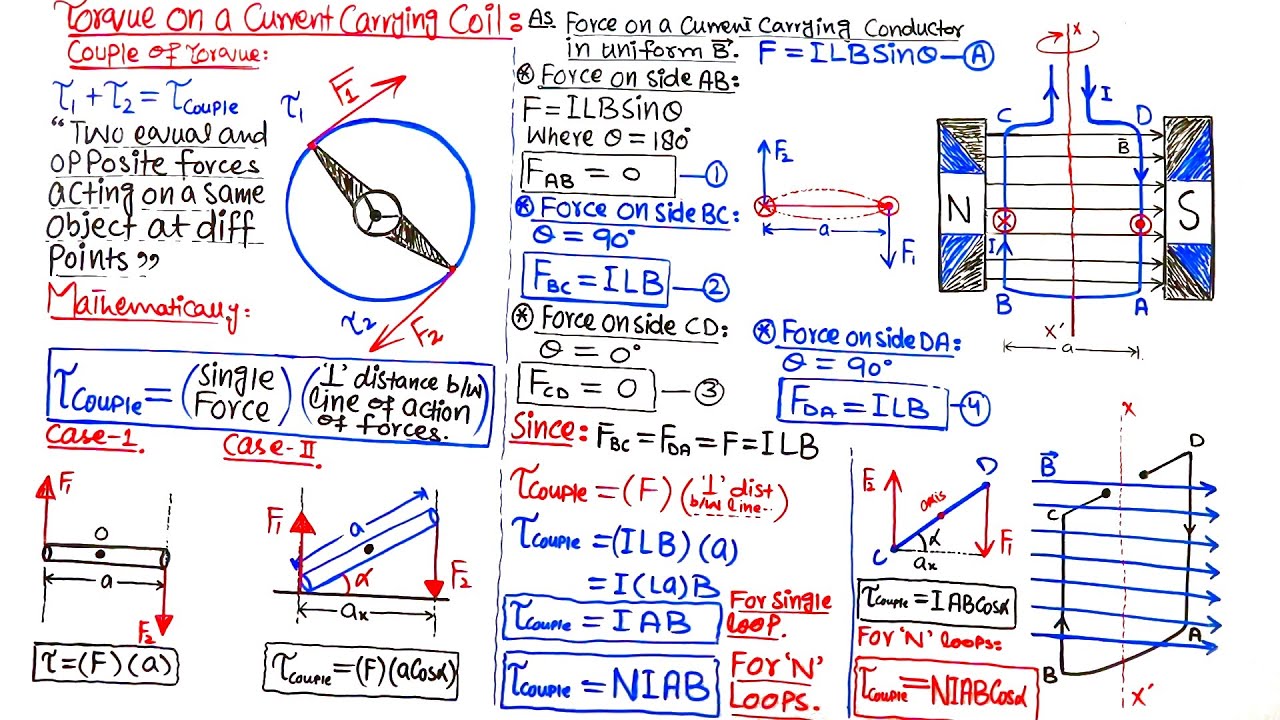 Torque on a Current Carrying Coil:
Couple of Torque:
τ₁ + τ₂ = τCouple
“Two equal and
opposite forces
acting on a same
Object at diff
Points”
Mathematically:
τ₁
F₁
τ₂
F₂
τCouple = (Single Force) ('⊥' distance b/w line of action of forces.)
Case-1.
F₁
O
a
F₂
τ = (F)(a)
Case-II
F₁
a
α
F₂
aₓ
τCouple = (F)(aCosα)
As Force on a Current Carrying Conductor
in uniform B⃗. F = ILBSinθ — Ⓐ
* Force on side AB:
F = ILBSinθ
Where θ = 180°
F_AB = 0 — ①
* Force on side BC:
θ = 90°
F_BC = ILB — ②
* Force on side CD:
θ = 0°
F_CD = 0 — ③
* Force on side DA:
θ = 90°
F_DA = ILB — ④
Since: F_BC = F_DA = F = ILB
τCouple = (F) ('⊥' dist b/w line..)
τCouple = (ILB)(a)
= I(La)B
τCouple = IAB
For Single
loop.
τCouple = NIAB
For 'N'
LOOPS.
F₂
a
F₁
X
C
D
I
B⃗
N
S
I
B
A
X'
a
F₂
D
axis
α
C
aₓ
F₁
τCouple = IABCosα
For 'N' loops:
τCouple = NIABCosα
X
D
B⃗
C
A
B
X'